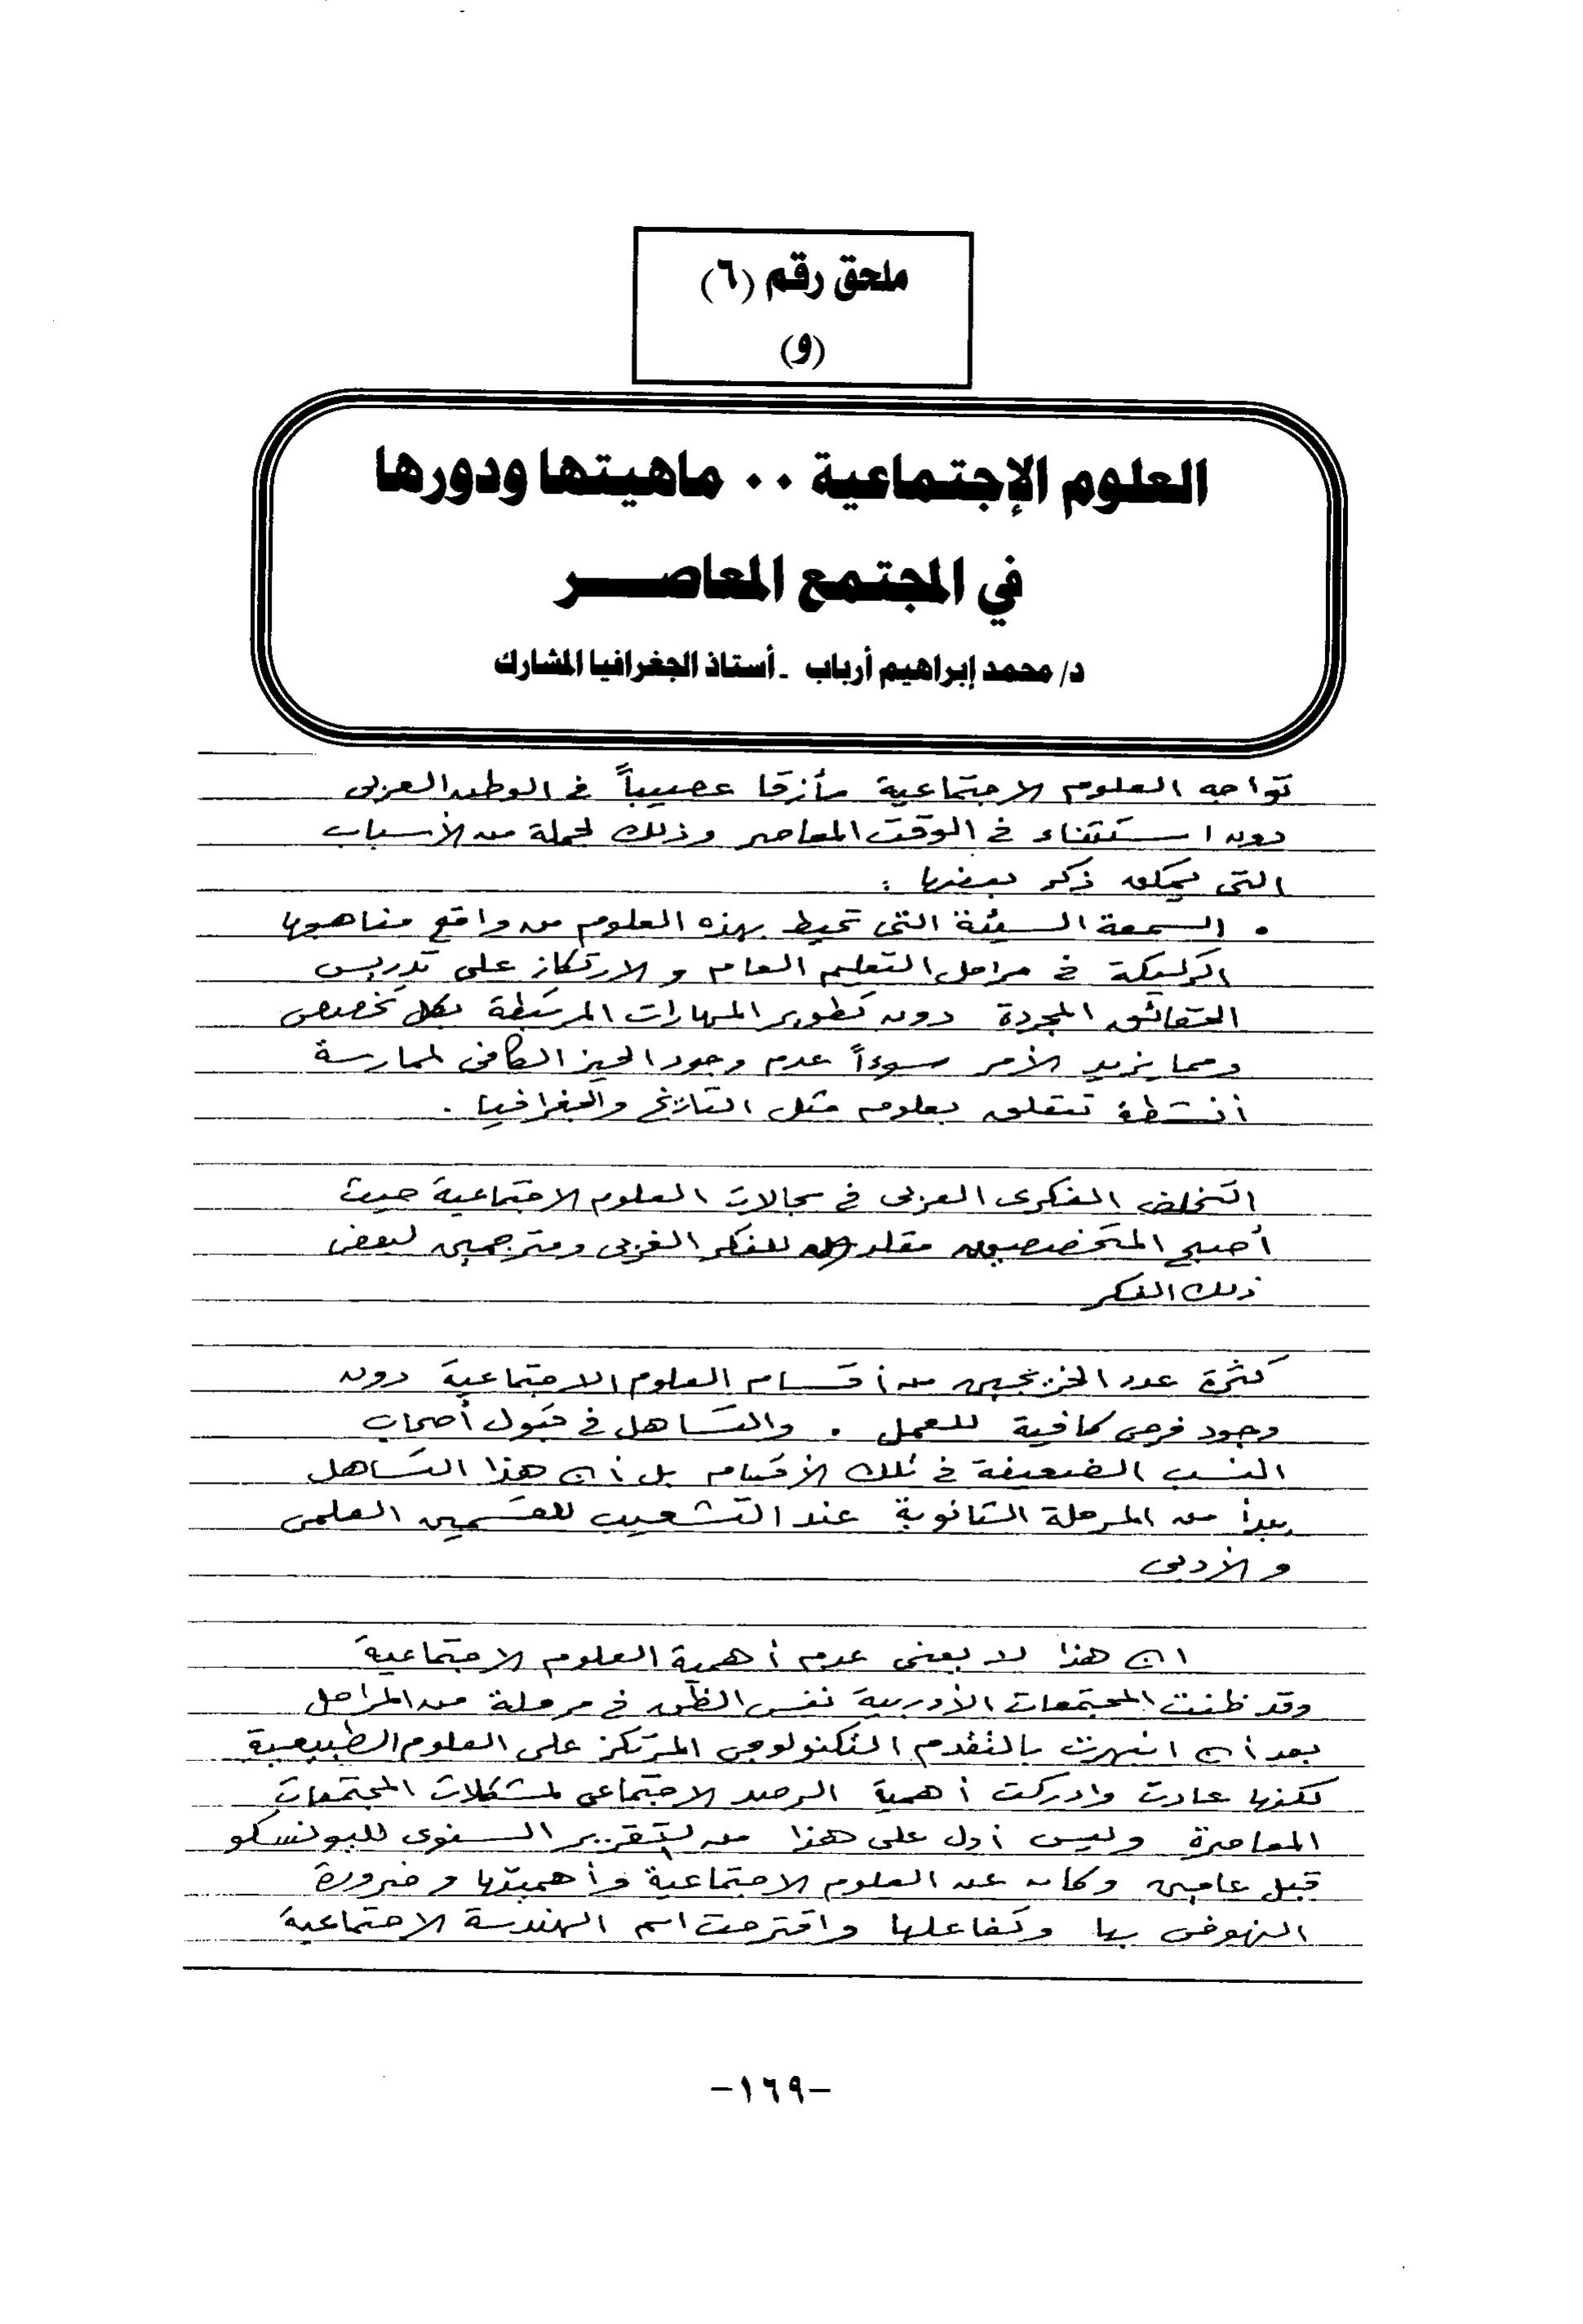 ملحق رقم (٦)
(و)
العلوم الإجتماعية ٠٠ ماهيتها ودورها
في المجتمع المعاصر
د/ محمد إبراهيم أرباب - أستاذ الجغرافيا المشارك
تواجه العلوم الاجتماعية مأزقا عصيباً في الوطن العربى
دون استثناء في الوقت المعاصر وذلك لجملة من الأسباب
التى يمكن ذكر بعضها :
• السمعة السيئة التى تحيط بهذه العلوم من واقع مناهجها
الركيكة في مراحل التعليم العام والارتكاز على تدريس
الحقائق المجردة دون تطوير المهارات المرتبطة بكل تخصص
ومما يزيد الأمر سوءاً عدم وجود الحيز الكافى لممارسة
أنشطة تتعلق بعلوم مثل التاريخ والجغرافيا .
التخلف الفكرى العربى في مجالات العلوم الاجتماعية حيث
أصبح المتخصصون مقلدين للفكر الغربى ومترجمين لبعض
ذلك الفكر
كثرة عدد الخريجين من أقسام العلوم الاجتماعية دون
وجود فرص كافية للعمل . والتساهل في قبول أصحاب
النسب الضعيفة في تلك الأقسام بل أن هذا التساهل
يبدأ من المرحلة الثانوية عند التشعيب للقسمين العلمى
والأدبى
ان هذا لا يعنى عدم أهمية العلوم الاجتماعية
وقد ظنت المجتمعات الأوربية نفس الظن في مرحلة من المراحل
بعد أن انبهرت بالتقدم التكنولوجى المرتكز على العلوم الطبيعية
لكنها عادت وادركت أهمية الرصد الاجتماعى لمشكلات المجتمعات
المعاصرة وليس أدل على هذا من التقرير السنوى لليونسكو
قبل عامين وكان عن العلوم الاجتماعية وأهميتها وضرورة
النهوض بها وتفاعلها واقترحت اسم الهندسة الاجتماعية
-١٦٩-